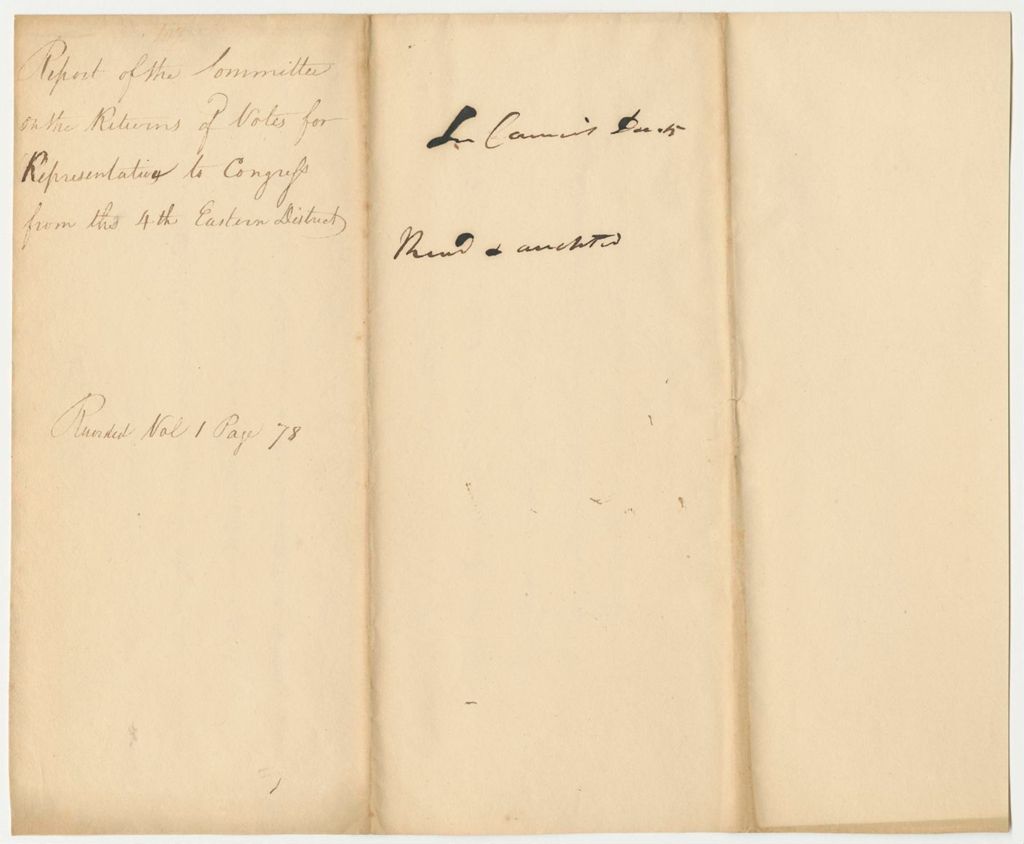 Report of the Committee
on the Returns of Votes for
Representative to Congress
from the 4th Eastern District
Recorded Vol 1 Page 78
In Council
Read &